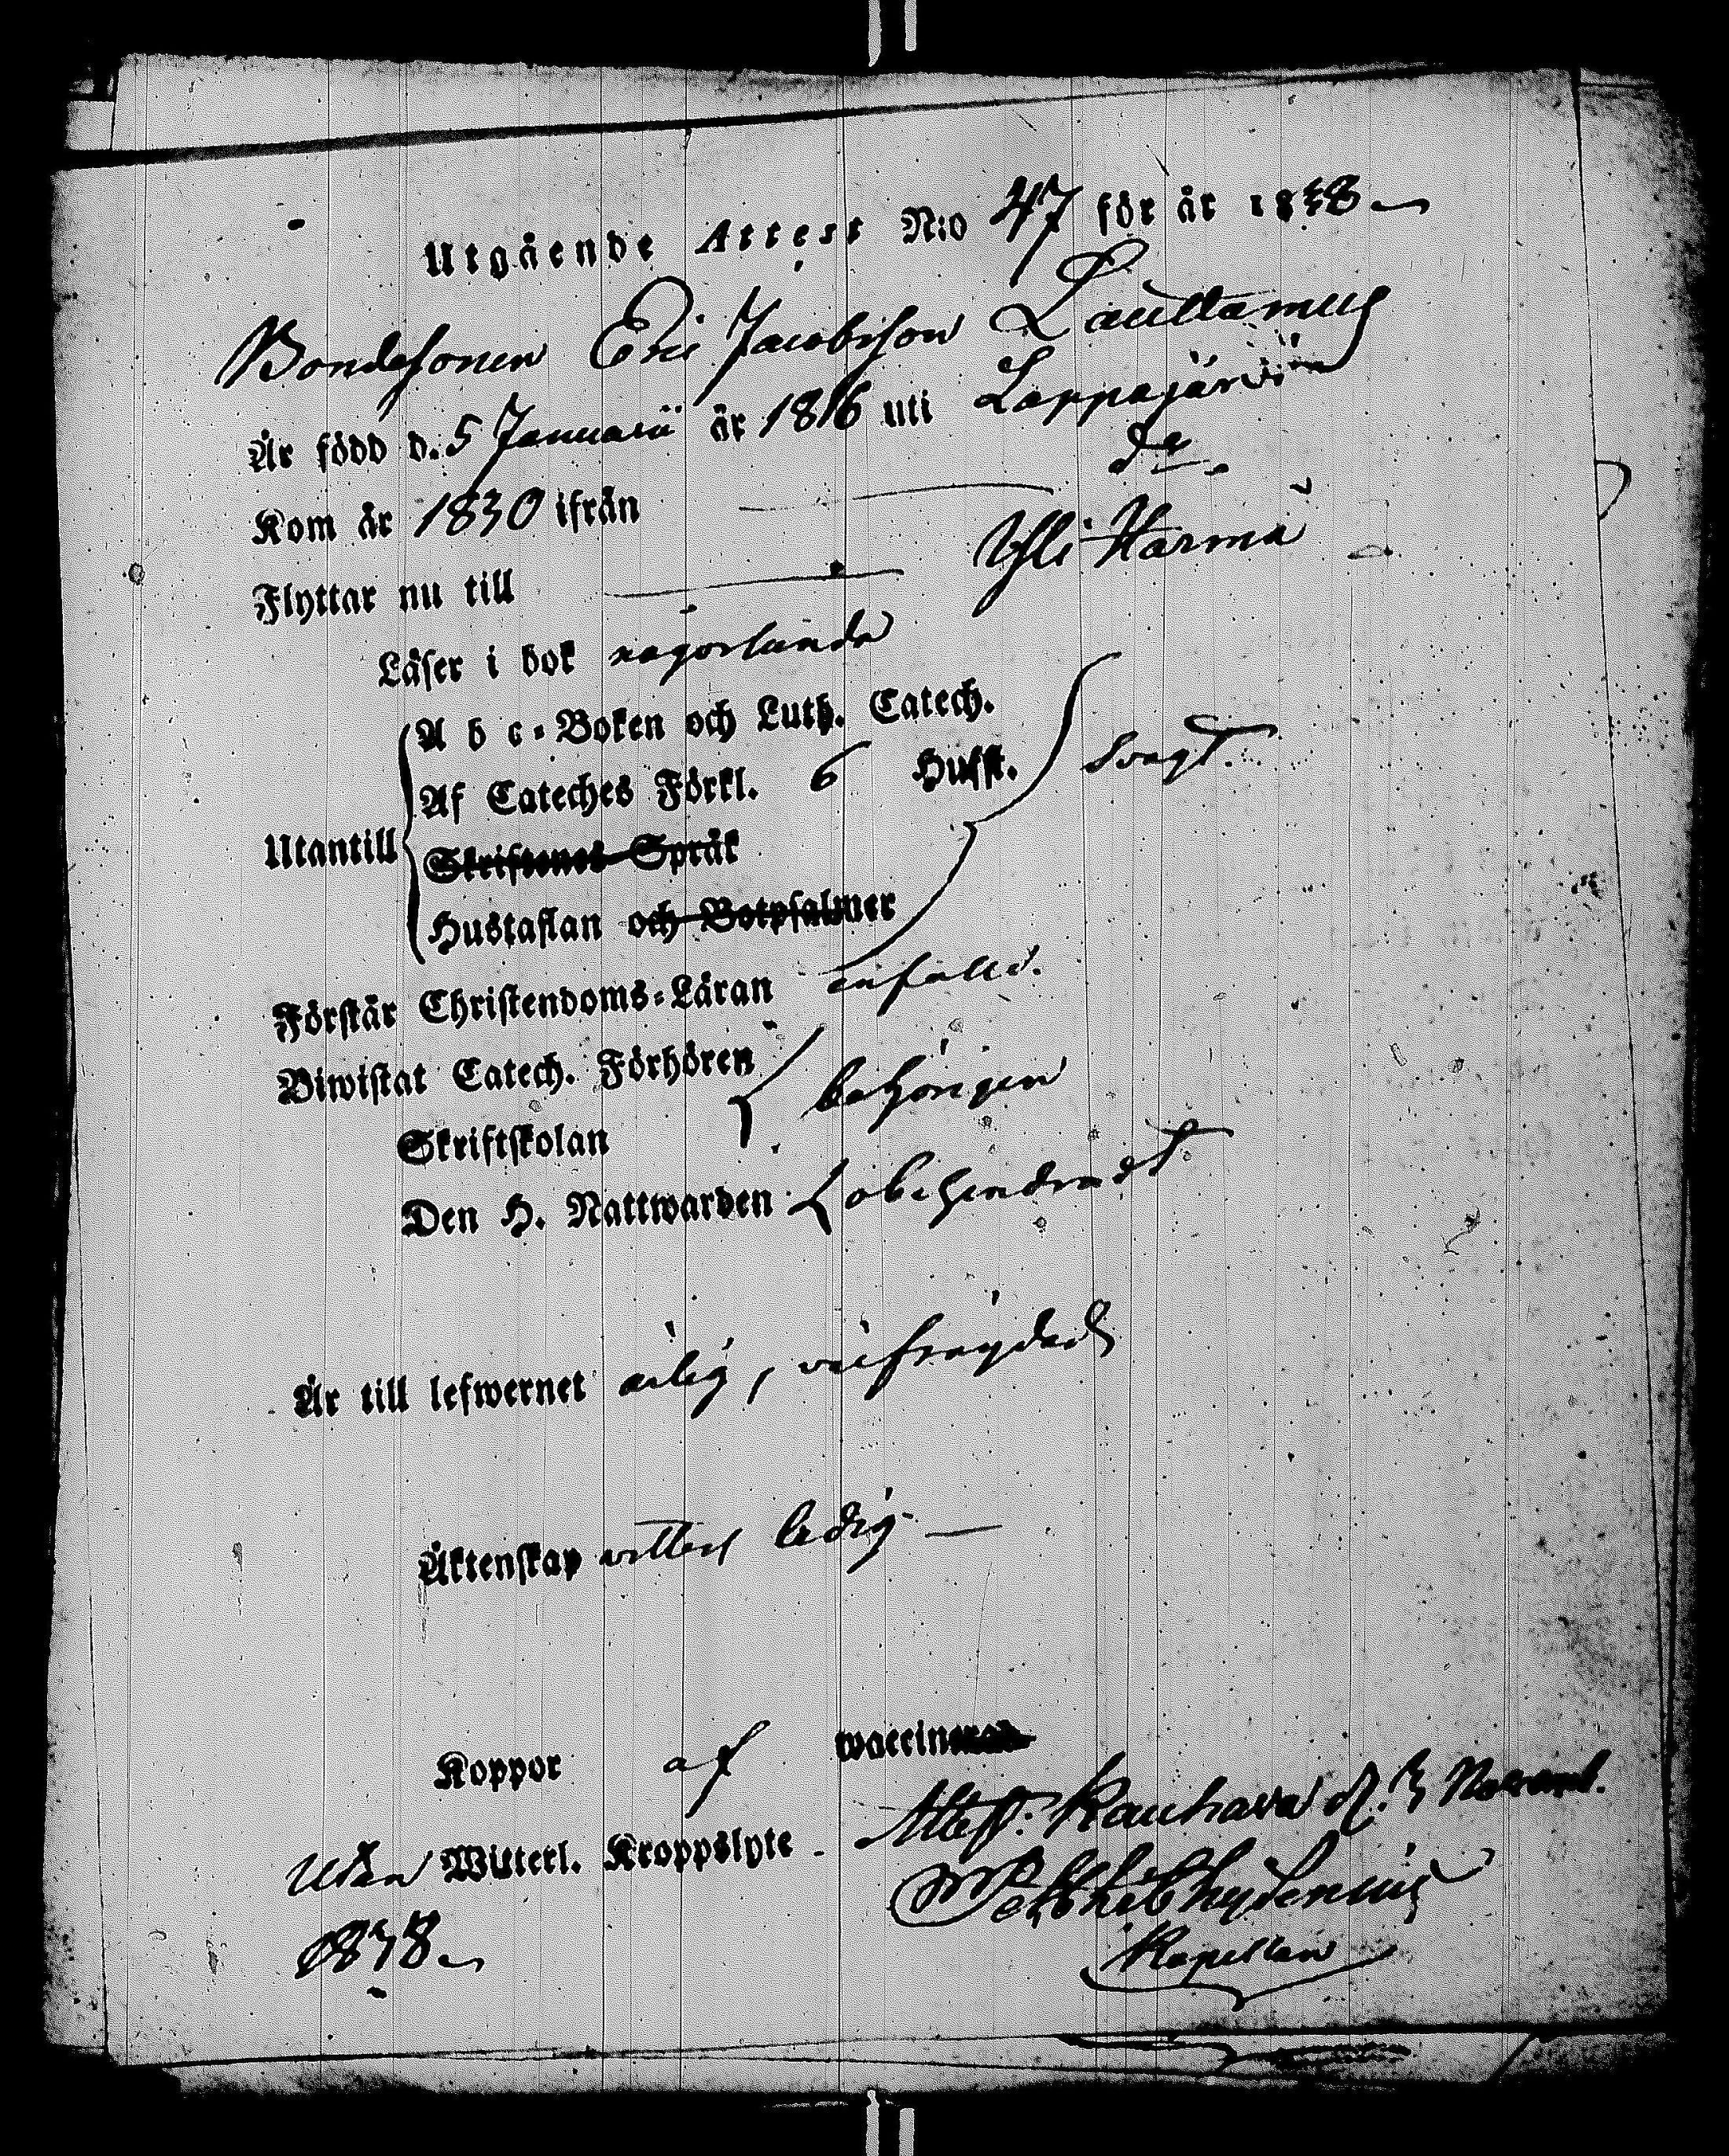 Utgående Attest N:o 47 för år 1838
Bondesonen Eric Jacobsson Lauttamus
Är född d. 5 Januarii år 1816 uti Lappajärvi
Kom år 1830 ifrån do
Flyttar nu till Ylihärmä
Läser i bok någorlunda
A b c-Boken och Luth. Catech.
Af Cateches Förkl. 6 Hufst. svagt.
Utantill
Skriftenes Språk
Hustaflan och Botpsalmer
Förstår Christendoms-Läran enfaldt.
Biwistat Catech. Förhören
behörigen
Skriftskolan
Den H. Nattwarden obehindradt
Är till lefwernet ärlig, välfrägdad
Äktenskap vetterl. ledig
Koppor af waccineran
Utan Witterl. Kroppslyte. Attest. Kauhava d. 3 Novemb.
1838
Kapellan